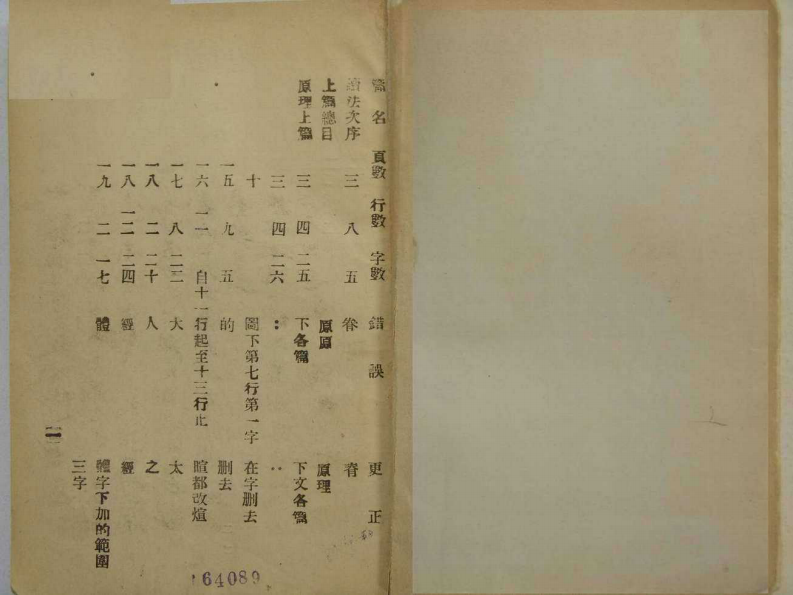 篇名 頁數 行數 字數 錯誤 更正
讀法次序 三 八 五 眷 脊
上篇總目 原原 原理
原理上篇 三 四 二五 下各篇 下文各篇
三 四 二六 ： ‥
十 圖下第七行第一字 在字刪去
一五 九 五 的 刪去
一六 一一 自十一行起至十三行止 暄都改煊
一七 八 二二 大 太
一八 二 二十 人 之
一八 一二 二四 經
一九 二 一七 體 體字下加的範圍
三字
64089